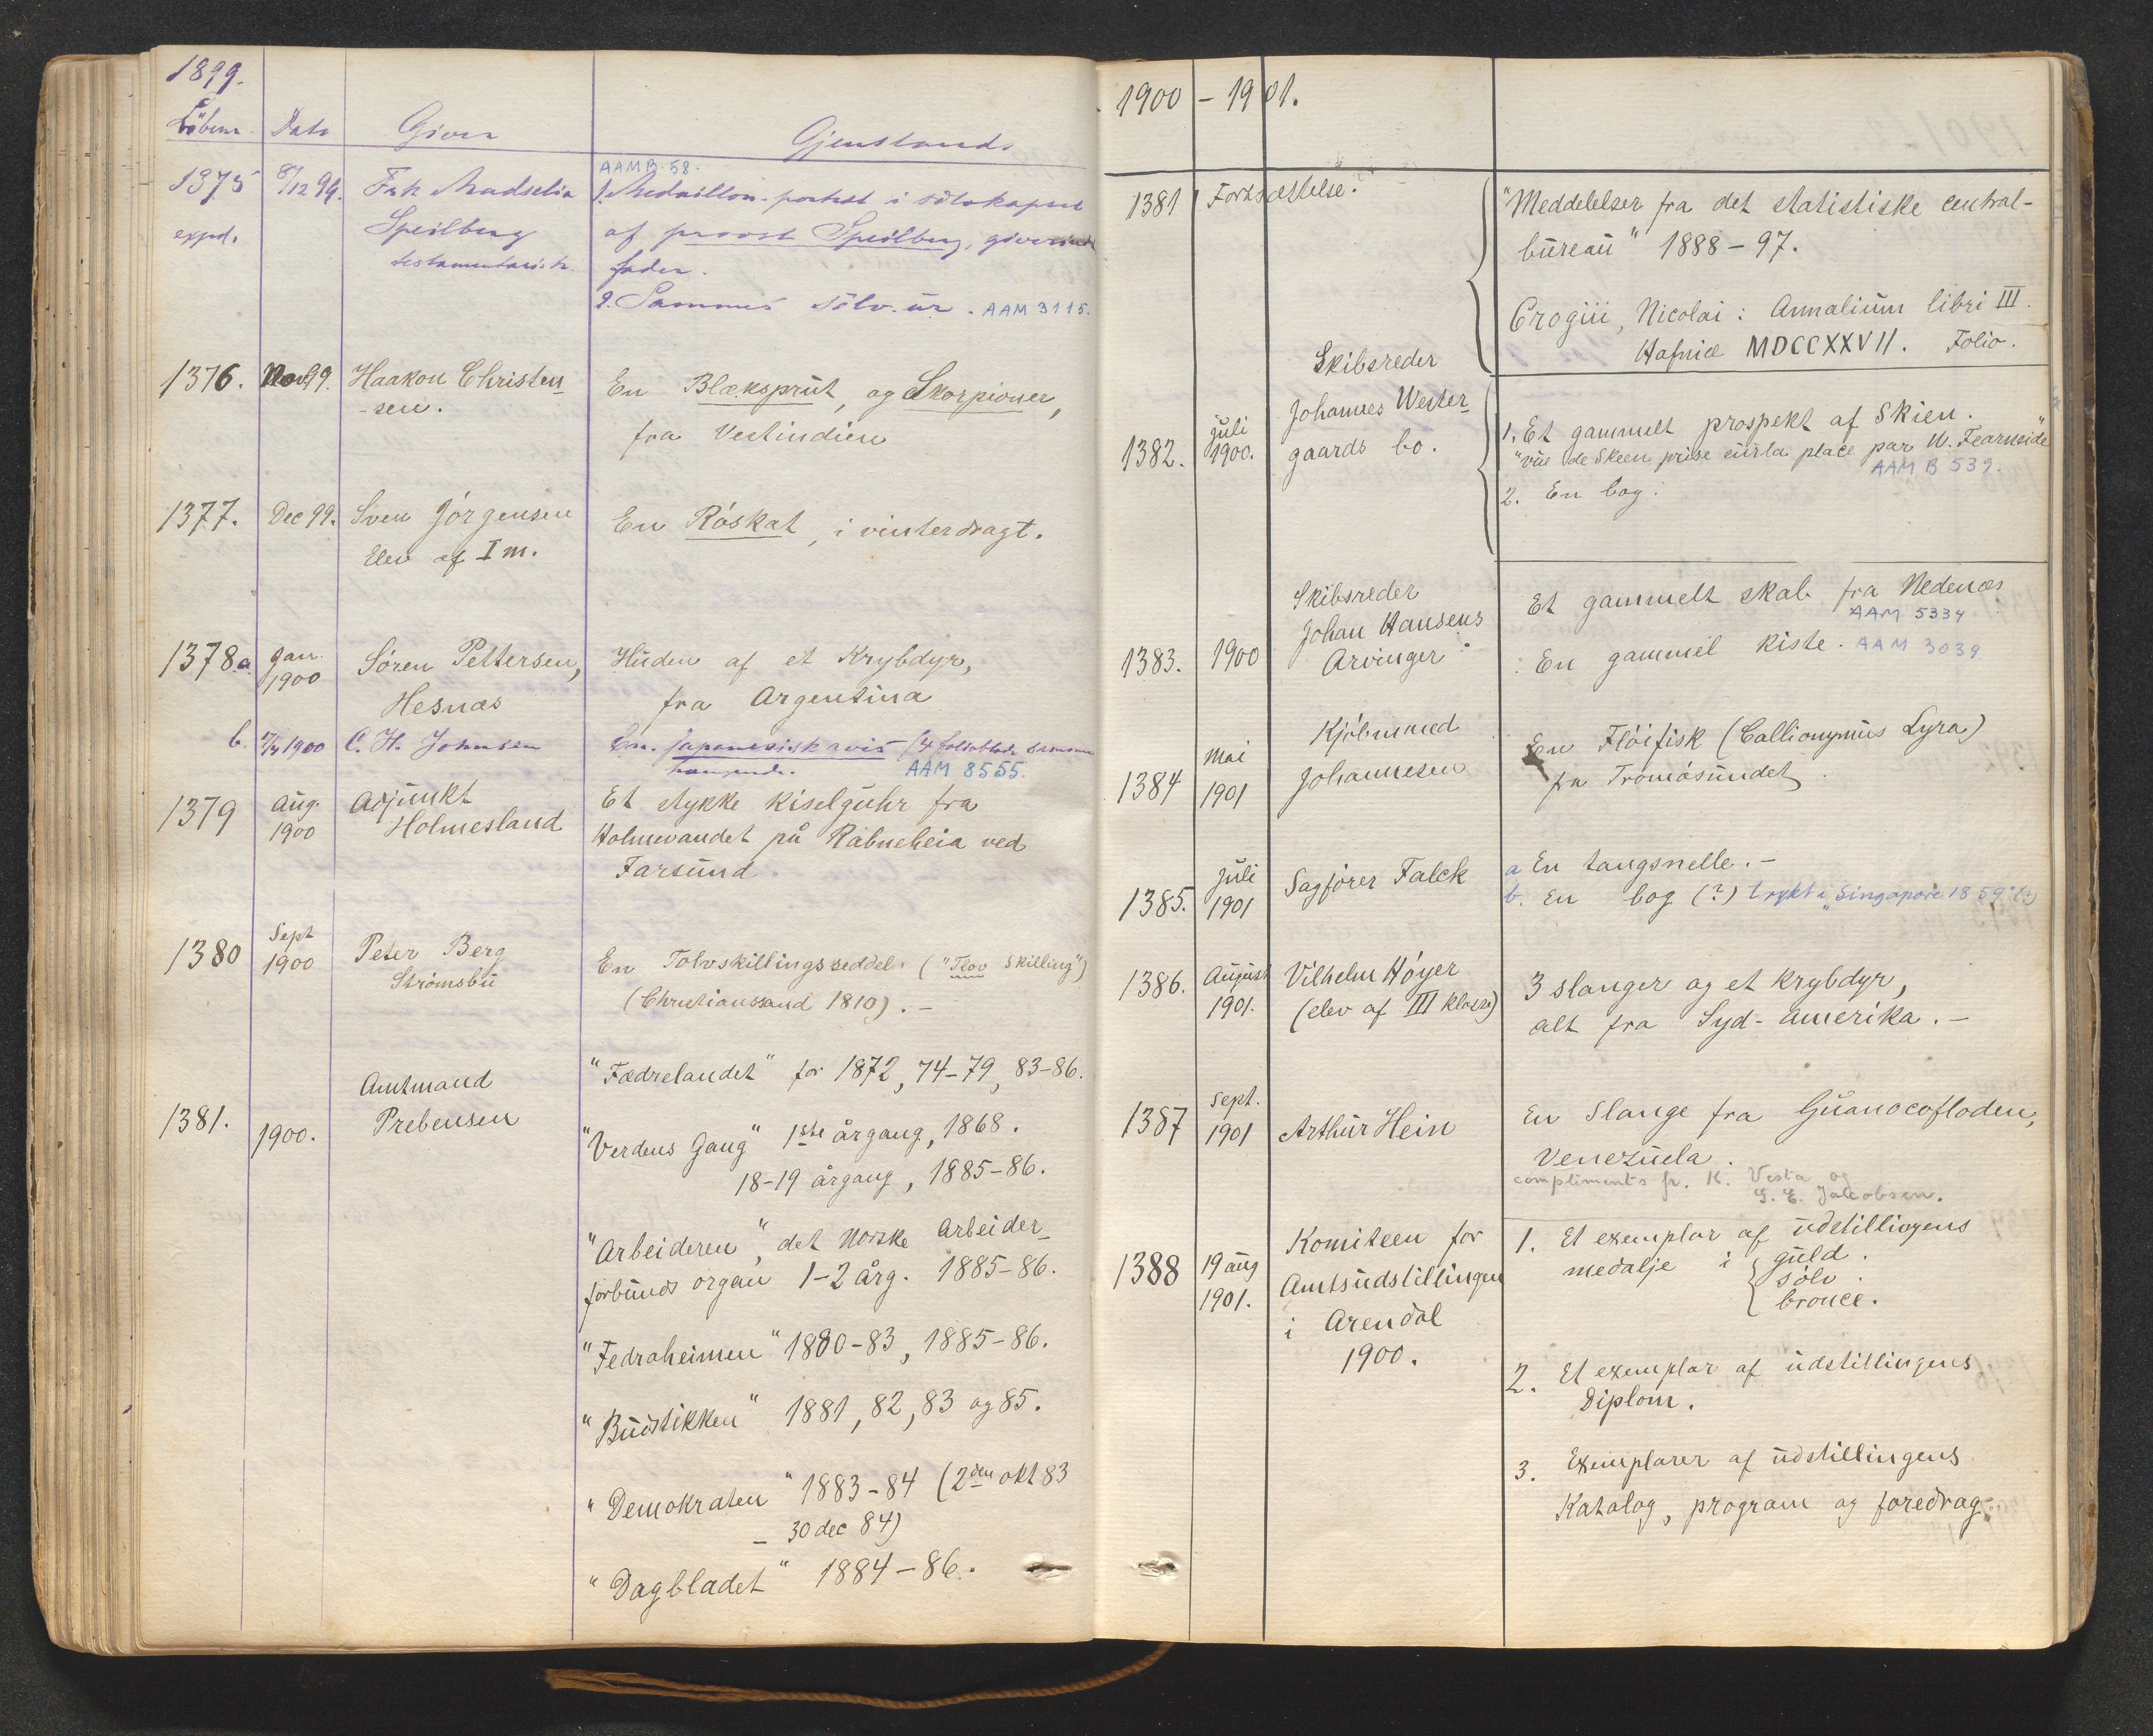 1899.
Löbenr. Dato Giver Gjenstand.
AAMB. 58.
1375 8/12 99. Frk. Andselia 1. Medaillon-portræt i sölvkapsel
expd. Speilberg af provst Speilberg, giverindens
testamentarisk. fader.
2. Sammes sölv-ur. AAM 3115.
1376. Nov 99. Haakon Christen- En Blæksprut, og Skorpioner,
-sen. fra Vestindien
1377. Dec 99. Sven Jörgensen En Röskat, i vinterdragt.
Elev af I m.
1378.a Jan. 1900 Sören Pettersen, Huden af et Krybdyr,
Hesnæs fra Argentina
b. 1900 C. H. Johnsen En japanesisk avis (4 folioblade sammen-
hængende. AAM 8555.
1379 Aug. 1900 Adjunkt Et stykke Kiselguhr fra
Holmesland Holmevandet på Rabneheia ved
Farsund.
1380 Sept 1900 Peter Berg En Tolvskillingsseddel. ("Tlov Skilling")
Strömsbu (Christianssand 1810). –
"Fædrelandet" for 1872, 74–79, 83–86.
Amtmand
1381. 1900. Prebensen "Verdens Gang" 1ste årgang, 1868.
18–19 årgang, 1885–86.
"Arbeideren", det Norske Arbeider-
forbunds organ 1–2 årg. 1885–86.
"Fedraheimen" 1880–83, 1885–86.
"Budstikken" 1881, 82, 83 og 85.
"Demokraten" 1883–84 (2den okt 83
– 30 dec 84)
"Dagbladet" 1884–86.
1900 – 1901.
1381 Fortsættelse. "Meddelelser fra det statistiske central-
büreau" 1888–97.
Crogiii, Nicolai: Annalium libri III.
Hafniæ MDCCXXVII. Folio.
Skibsreder
Johannes Wester-
1382. juli 1900. gaards bo. 1. Et gammelt prospekt af Skien.
"vüe de Skeen prise sur la place par W. Fearnside"
AAM B 539.
2. En bog.
Skibsreder Et gammelt skab fra Nedenæs
Johan Hansens AAM 5334
1383. 1900 Arvinger En gammel kiste. AAM 3039.
Kjöbmand En Flöifisk (Callionymus Lyra)
1384 Mai 1901 Johannesen fra Tromösundet.
1385. Juli 1901 Sagförer Falck a En tangsnelle. –
b. En bog (?) trykt i "Singapore 1859" (?)
1386. August 1901. Vilhelm Höyer 3 slanger og et krybdyr,
(elev af III klasse) alt fra Syd-Amerika. –
1387 Sept. 1901 Arthur Hein En Slange fra Guanocofloden,
Venezuela.
compliments fr. K. Vesta og
G. E. Jacobsen.
1388 19 aug 1901. Komiteen for 1. Et exemplar af udstillingens
Amtsudstillingen medalje i guld.
i Arendal sölv.
1900. bronce.
2. Et exemplar af udstillingens
Diplom.
3. Exemplarer af udstillingens
Katalog, program og foredrag.